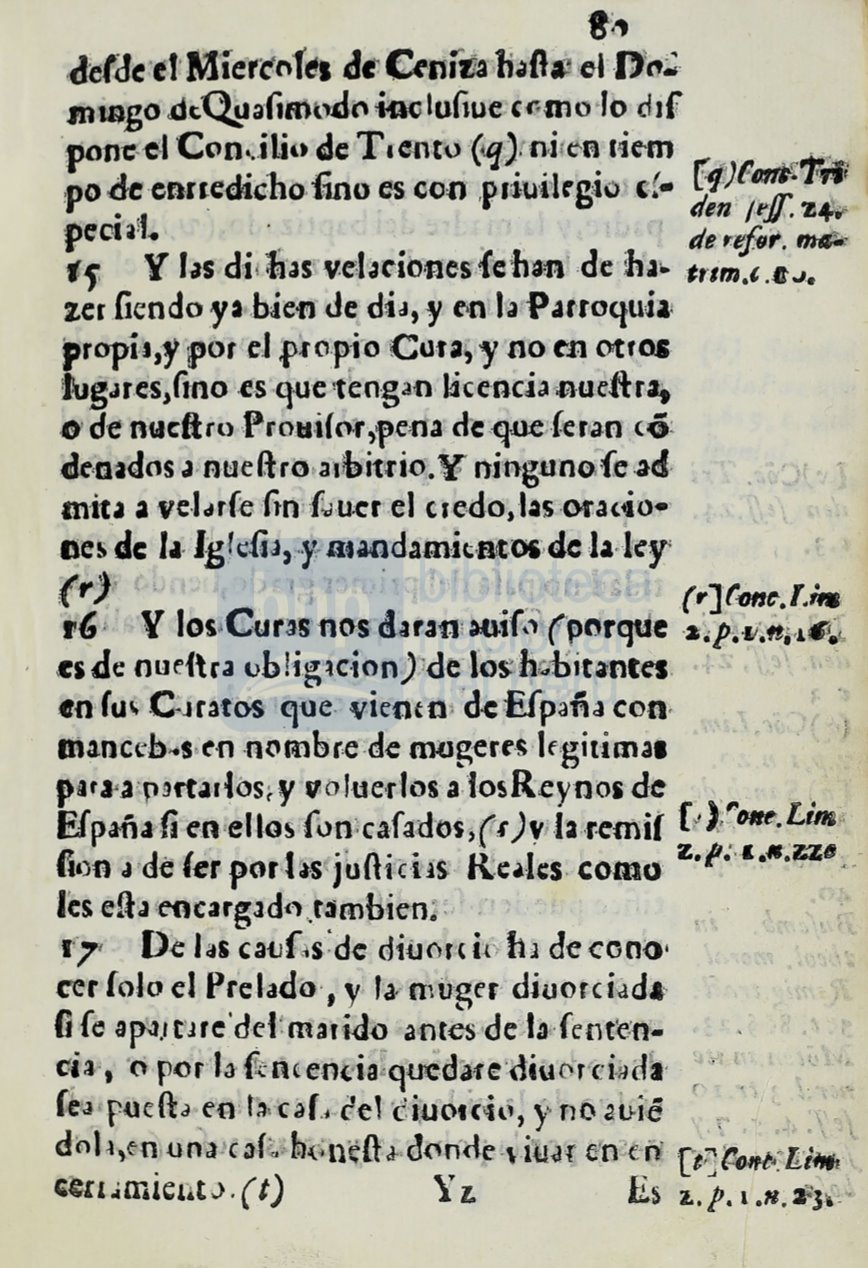 80
desde el Miercoles de Ceniza hasta el Do-
mingo de Quasimodo inclusiue como lo dis
pone el Concilio de Trento (q) ni en tiem
po de entredicho sino es con priuilegio es-
pecial.
[q) Conc. Tri
den sess. 24.
de refor. ma-
trim. c.
15 Y las dichas velaciones se han de ha-
zer siendo ya bien de dia, y en la Parroquia
propia, y por el propio Cura, y no en otros
lugares, sino es que tengan licencia nuestra,
o de nuestro Prouisor, pena de que seran cõ
denados a nuestro arbitrio. Y ninguno se ad
mita a velarse sin sauer el credo, las oracio-
nes de la Iglesia, y mandamientos de la ley
(r)
(r] Conc. Lim
2. p. 1. n. 16.
16 Y los Curas nos daran auiso (porque
es de nuestra obligacion) de los habitantes
en sus Curatos que vienen de España con
mancebas en nombre de mugeres legitimas
para apartarlos, y voluerlos a los Reynos de
España si en ellos son casados, (s) y la remis
sion a de ser por las justicias Reales como
les esta encargado tambien.
[s) Conc. Lim
2. p. 1. n. 220
17 De las causas de diuorcio ha de cono-
cer solo el Prelado, y la muger diuorciada
si se apartare del marido antes de la senten-
cia, o por la sentencia quedare diuorciada
sea puesta en la casa del diuorcio, y no auiẽ
dola, en una casa honesta donde viuan en en
cerramiento. (t)
[t] Conc. Lim
2. p. 1. n. 23.
Y2 Es
biblioteca
nacional